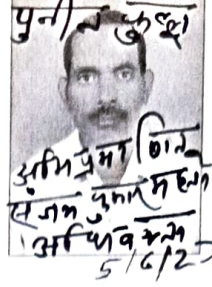 पुनीत कुमार
अभिप्रमाणित
संजय कुमार महतो
अधिवक्ता
5/6/25